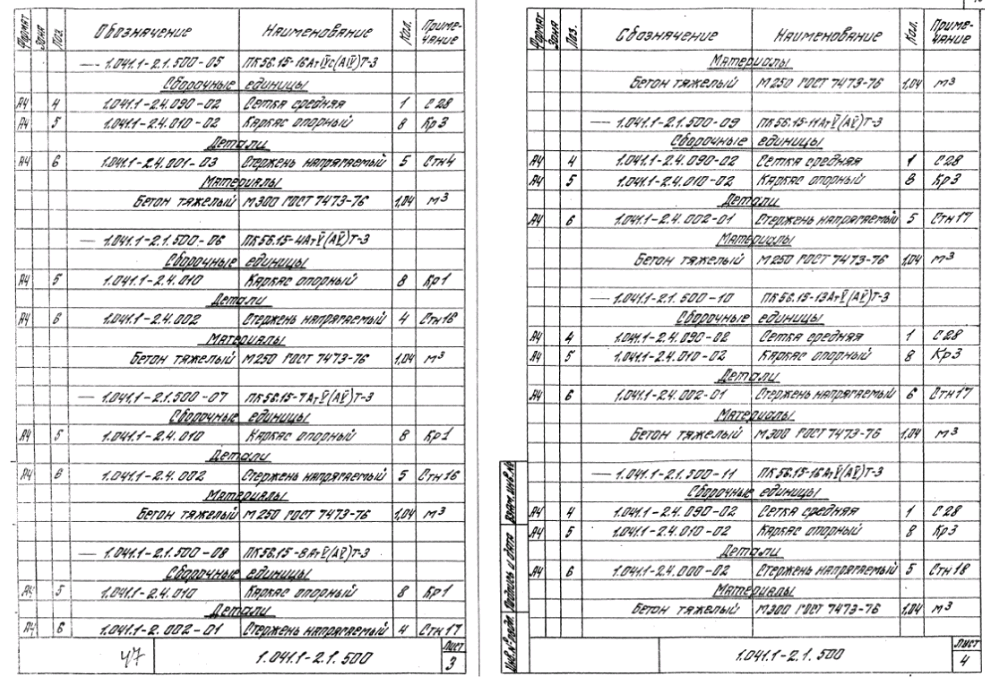 Формат Зона Поз. Обозначение Наименование Кол. Примечание
— 1.041.1-2.1.500-05 ПК56.15-16АтIVс(АIV)Т-3
Сборочные единицы
А4 4 1.041.1-2.4.090-02 Сетка средняя 1 С28
А4 5 1.041.1-2.4.010-02 Каркас опорный 8 Кр3
Детали
А4 6 1.041.1-2.4.001-03 Стержень напрягаемый 5 Стн4
Материалы
Бетон тяжелый М300 ГОСТ 7473-76 1,04 м3
— 1.041.1-2.1.500-06 ПК56.15-4АтV(АV)Т-3
Сборочные единицы
А4 5 1.041.1-2.4.010 Каркас опорный 8 Кр1
Детали
А4 6 1.041.1-2.4.002 Стержень напрягаемый 4 Стн16
Материалы
Бетон тяжелый М250 ГОСТ 7473-76 1,04 м3
— 1.041.1-2.1.500-07 ПК56.15-7АтV(АV)Т-3
Сборочные единицы
А4 5 1.041.1-2.4.010 Каркас опорный 8 Кр1
Детали
А4 6 1.041.1-2.4.002 Стержень напрягаемый 5 Стн16
Материалы
Бетон тяжелый М250 ГОСТ 7473-76 1,04 м3
— 1.041.1-2.1.500-08 ПК56.15-8АтV(АV)Т-3
Сборочные единицы
А4 5 1.041.1-2.4.010 Каркас опорный 8 Кр1
Детали
А4 6 1.041.1-2.002-01 Стержень напрягаемый 4 Стн17
47 1.041.1-2.1.500 Лист 3
Формат Зона Поз. Обозначение Наименование Кол. Примечание
Материалы
Бетон тяжелый М250 ГОСТ 7473-76 1,04 м3
— 1.041.1-2.1.500-09 ПК56.15-11АтV(АV)Т-3
Сборочные единицы
А4 4 1.041.1-2.4.090-02 Сетка средняя 1 С28
А4 5 1.041.1-2.4.010-02 Каркас опорный 8 Кр3
Детали
А4 6 1.041.1-2.4.002-01 Стержень напрягаемый 5 Стн17
Материалы
Бетон тяжелый М250 ГОСТ 7473-76 1,04 м3
— 1.041.1-2.1.500-10 ПК56.15-13АтV(АV)Т-3
Сборочные единицы
А4 4 1.041.1-2.4.090-02 Сетка средняя 1 С28
А4 5 1.041.1-2.4.010-02 Каркас опорный 8 Кр3
Детали
А4 6 1.041.1-2.4.002-01 Стержень напрягаемый 6 Стн17
Материалы
Бетон тяжелый М300 ГОСТ 7473-76 1,04 м3
— 1.041.1-2.1.500-11 ПК56.15-16АтV(АV)Т-3
Сборочные единицы
А4 4 1.041.1-2.4.090-02 Сетка средняя 1 С28
А4 5 1.041.1-2.4.010-02 Каркас опорный 8 Кр3
Детали
А4 6 1.041.1-2.4.000-02 Стержень напрягаемый 5 Стн18
Материалы
Бетон тяжелый М300 ГОСТ 7473-76 1,04 м3
Инв.№ подл. Подпись и дата Взам.инв.№
1.041.1-2.1.500 Лист 4